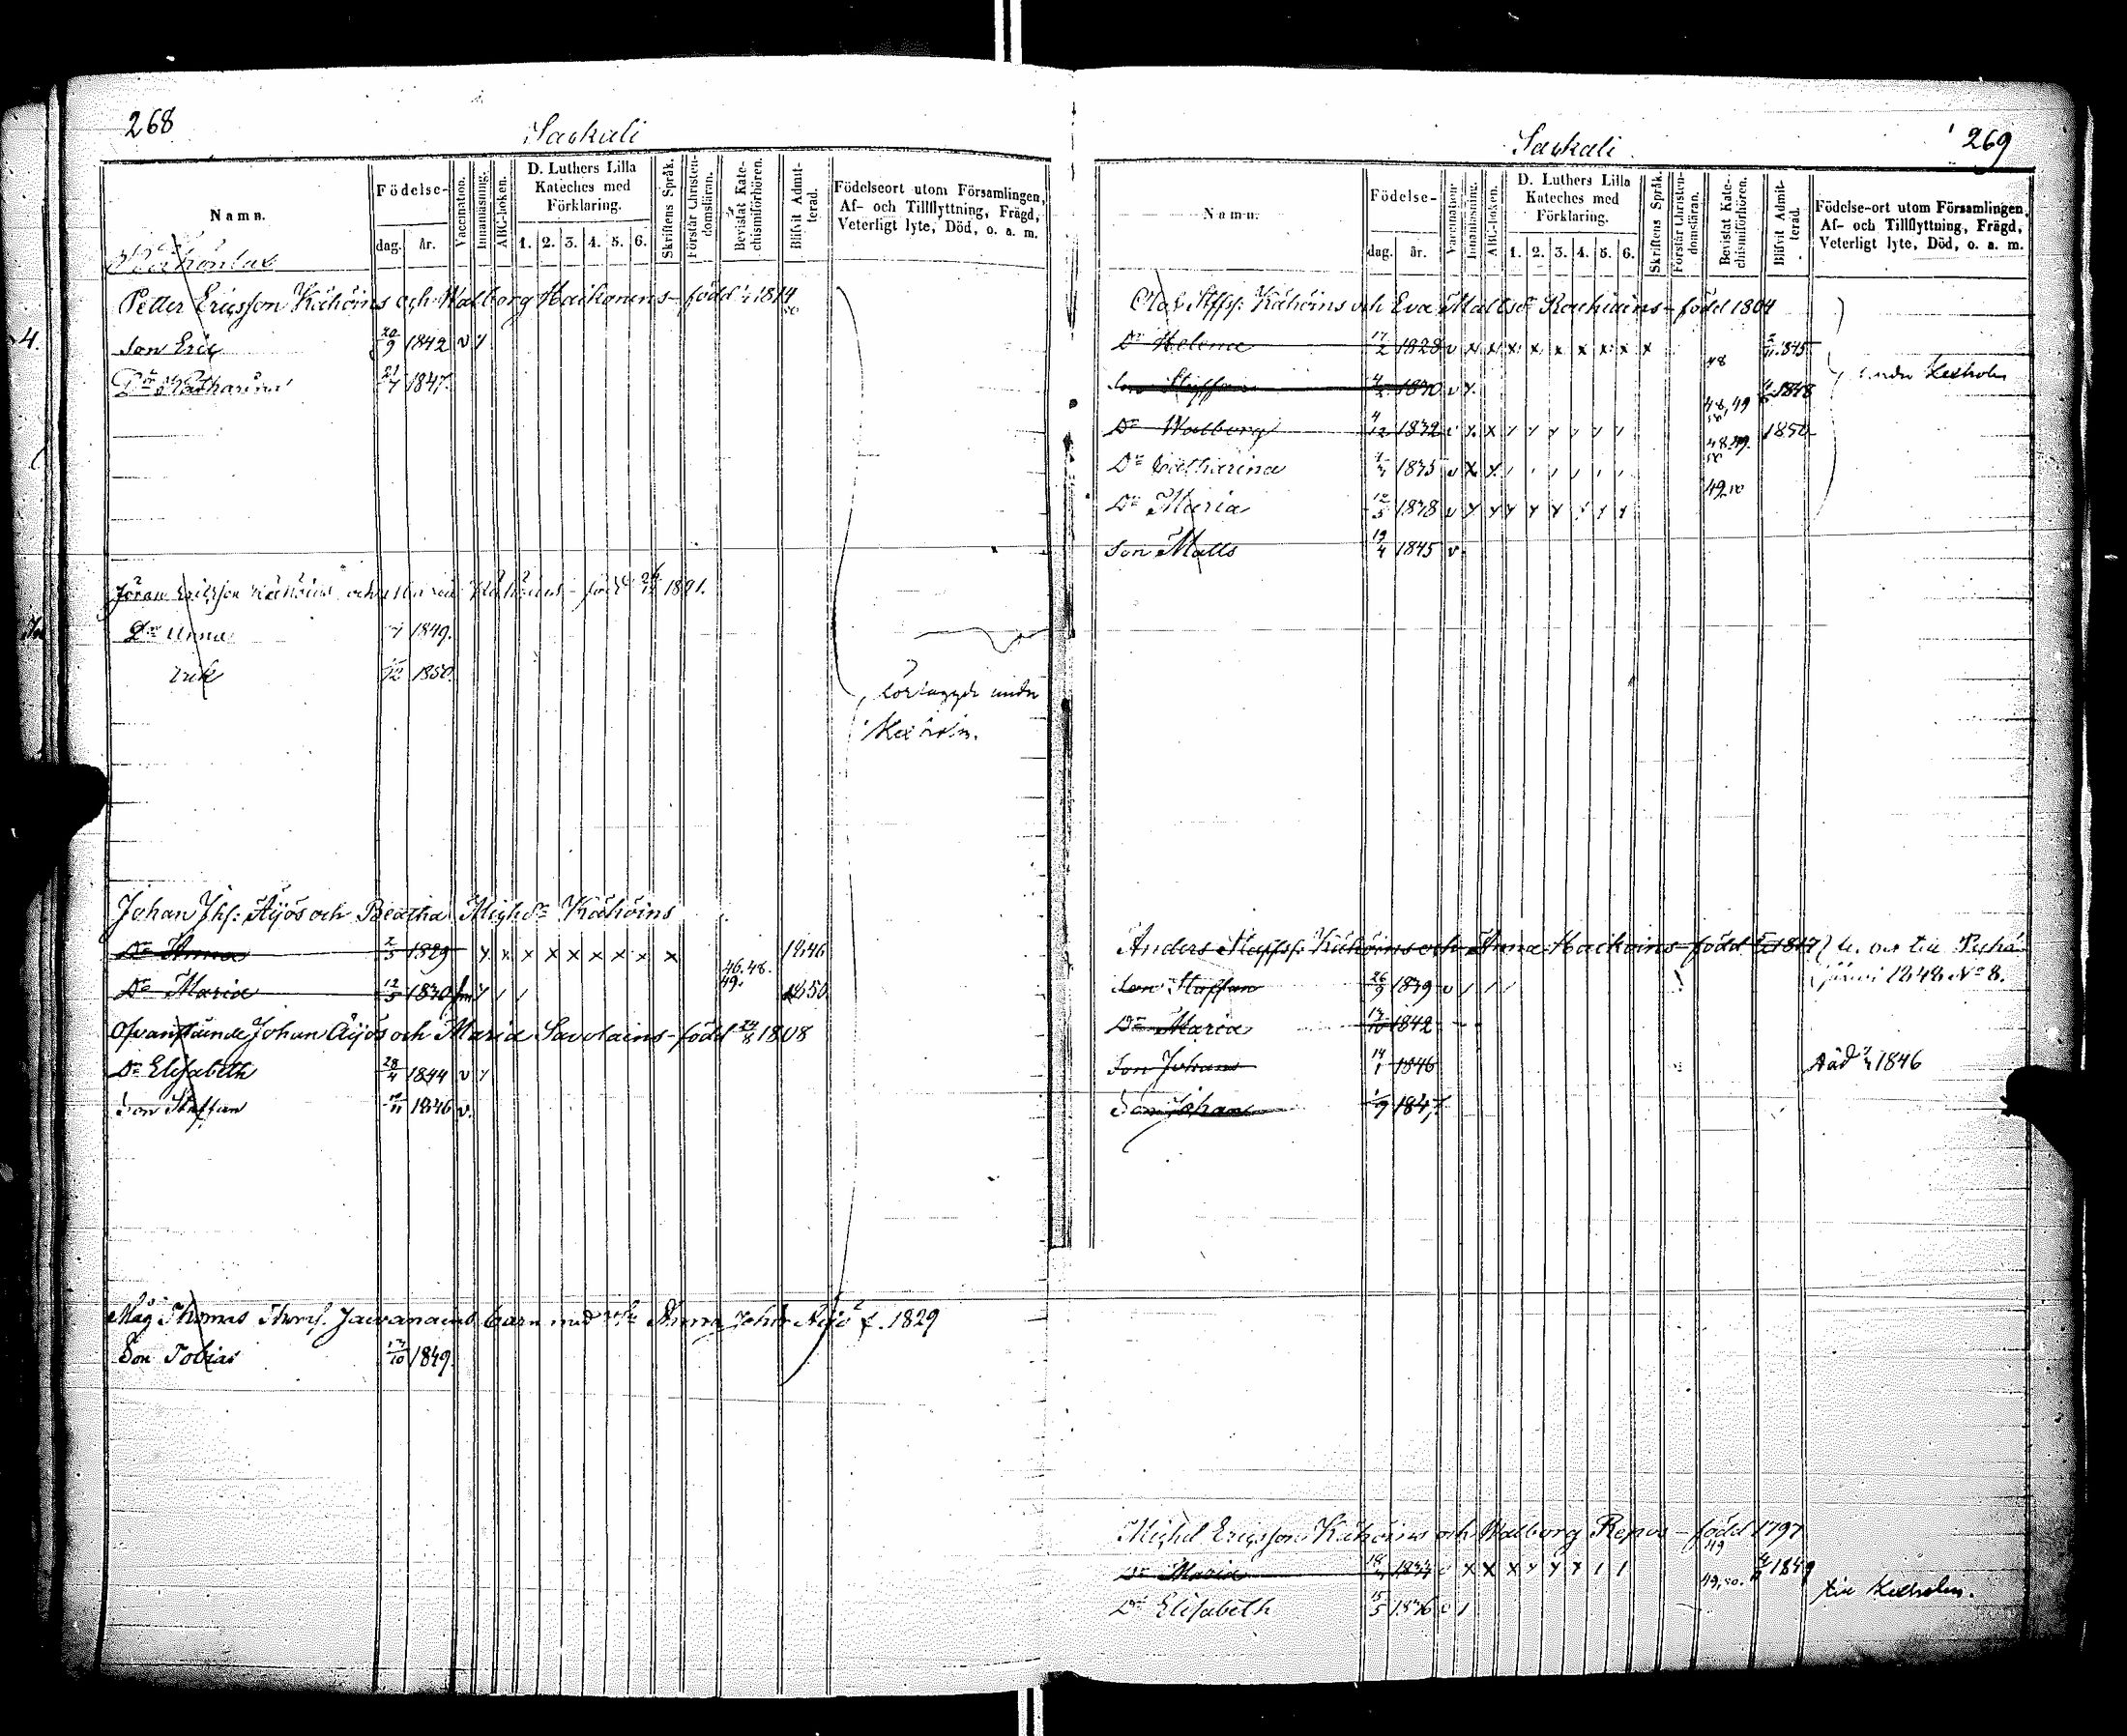 268
Saskali
Namn.
Födelse-
dag. år.
Vaccination.
Innanläsning.
ABC-boken.
D. Luthers Lilla
Kateches med
Förklaring.
1. 2. 3. 4. 5. 6.
Skriftens Språk.
Förstår Christen-
domsläran.
Bevistat Kate-
chismiförhören.
Blifvit Admit-
terad.
Födelseort utom Församlingen,
Af- och Tillflyttning, Frägd,
Veterligt lyte, Död, o. a. m.
Petter Ericsson Kähöins och Walborg Haikonens - född 1814
Son Eric 20/9 1842 v
Dr Catharina 21/7 1847.
Jöran Ericsson Kähöins och Maria Kähöins - född 1821.
Dr Anna 1849.
Erik 1850.
under
Kexholm.
Johan Jhs: Äijös och Beatha Mighdr Kähöins
Dr Anna 2/5 1829 x x x x x x x x x 1846
Dr Maria 12/5 1830 46. 48. 49. 1850
Ofvanstående Johan Äijös och Maria Savolains - född 24/8 1808
Dr Elisabeth 28/4 1844 v
Son Staffan 1846 v.
Måg Thomas Thoms. Javanains barn med Anna Johdr Äijö f. 1829
Son Tobias 17/10 1849.
269
Saskali
Namn.
Födelse-
dag. år.
Vaccination.
Innanläsning.
ABC-boken.
D. Luthers Lilla
Kateches med
Förklaring.
1. 2. 3. 4. 5. 6.
Skriftens Språk.
Förstår Christen-
domsläran.
Bevistat Kate-
chismiförhören.
Blifvit Admit-
terad.
Födelse-ort utom Församlingen,
Af- och Tillflyttning, Frägd,
Veterligt lyte, Död, o. a. m.
Olof Stffss: Kähöins och Eva Mattsdr Rachiains - född 1804
Dr Helena 17/2 1828 v x x x x x x x x x 48 1845
Son Staffan 4/2 1830 v 48, 49 1848
under Kexholm
Dr Walborg 4/12 1832 48 49. 50 1850
Dr Catharina 1/7 1835 v x 49 50
Dr Maria 12/5 1838 v
Son Matts 19/4 1845 v
Anders Staffss: Kähöins och Anna Haikoins - född 1817
1848 No 8.
Son Staffan 26/9 1839 v
Dr Maria 17/10 1842
Son Johans 14/1 1846 död 1846
Son Johan 1/9 1847
Michel Ericsson Kähöins och Walborg Repos - född 1797
Dr Maria 18/4 1834 49 1849
Dr Elisabeth 15/5 1836 49, 50.
till Kexholm.